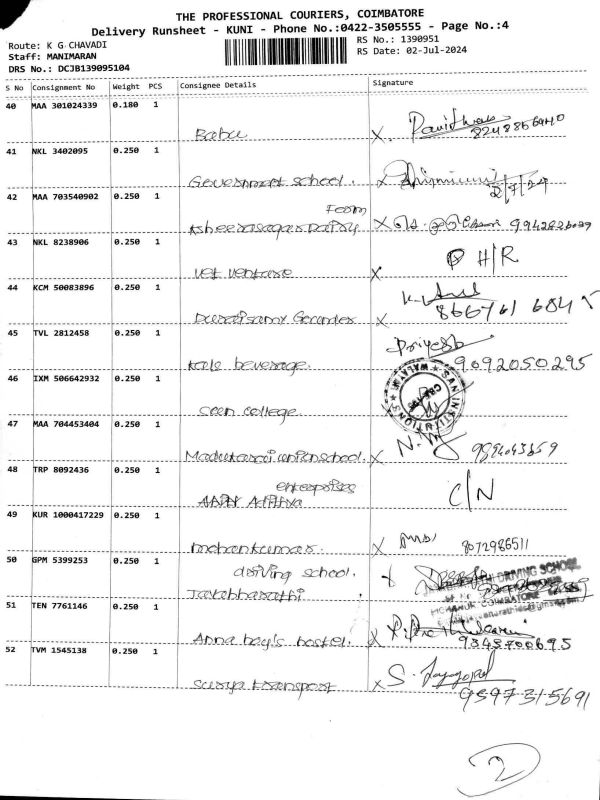 THE PROFESSIONAL COURIERS, COIMBATORE
Delivery Runsheet - KUNI - Phone No.:0422-3505555 - Page No.:4
Route: K G CHAVADI
RS No.: 1390951
Staff: MANIMARAN
RS Date: 02-Jul-2024
DRS No.: DCJB139095104
S No Consignment No Weight PCS Consignee Details Signature
40 MAA 301024339 0.180 1
Babu X
41 NKL 3402095 0.250 1
Government school. X 2/7/24
42 MAA 703540902 0.250 1
Farm
X 9942826029
43 NKL 8238906 0.250 1
vet venture X D H/R
44 KCM 50083896 0.250 1
Duraisamy Gounder X
45 TVL 2812458 0.250 1
Priyesh
Kals beverage. 9092050295
46 IXM 506642932 0.250 1
SAN INSTITUTIONS WALAYAR
college
47 MAA 704453404 0.250 1
school. X
48 TRP 8092436 0.250 1
enterprises
Adithya C/N
49 KUR 1000417229 0.250 1
mohankumar. X 8072986511
50 GPM 5399253 0.250 1
driving school.
DRIVING SCHOOL
51 TEN 7761146 0.250 1
Anna boy's hostel. X 9345700695
52 TVM 1545138 0.250 1
S. Jayagopal
Surya transport X 9597315691
2